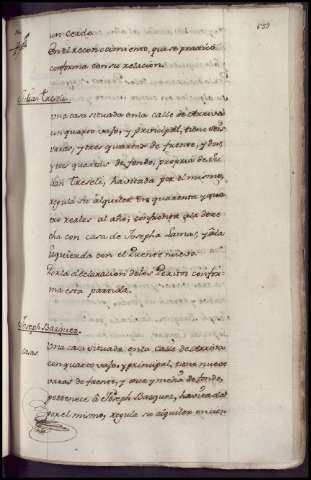 un cerdo
En el reconocimiento, que se practicó
conforma con su relacion.
Treseli.
Una casa situada en la calle de Arriva
un quarto vajo, y principal, tiene seis
varas, y tres quartos de frente, y dos
y tres quartos de fondo, propria de
Treseli, havitada por el mismo,
regula su alquiler en quarenta y qua
tro reales al año; confronta por dere
cha con casa de Josepha Lamas, y por la
izquierda con el Puente nuevo
Por la declaracion de los Peritos confor
ma esta partida.
Joseph Bazquez.
Casas.
Una casa situada en la calle de Arriva
con quarto vajo, y principal, tiene nueve
varas de frente, y once y media de fondo,
pertenece à Joseph Bazquez, havitada
por el mismo, regula su alquiler en cien